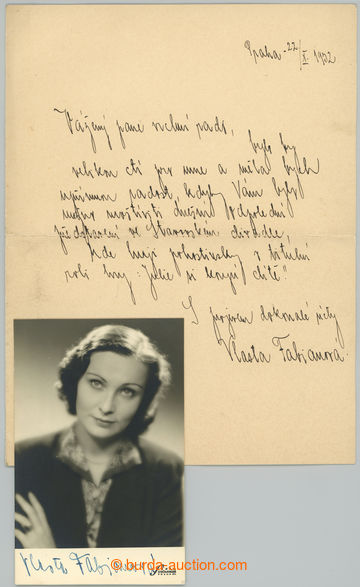 Praha - 22/X 1932
Vážený pane vrchní rado,
bylo by
velkou ctí pro mne a měla bych
upřímnou radost, kdyby Vám bylo
možno navštíviti dnešní odpolední
představení ve Stavovském divadle,
kde hraji pohostinsky v titulní
roli hry: „Julie si koupí dítě."
S projevem dokonalé úcty
Vlasta Fabianová.
Vlasta Fabianová
© burda-auction.com